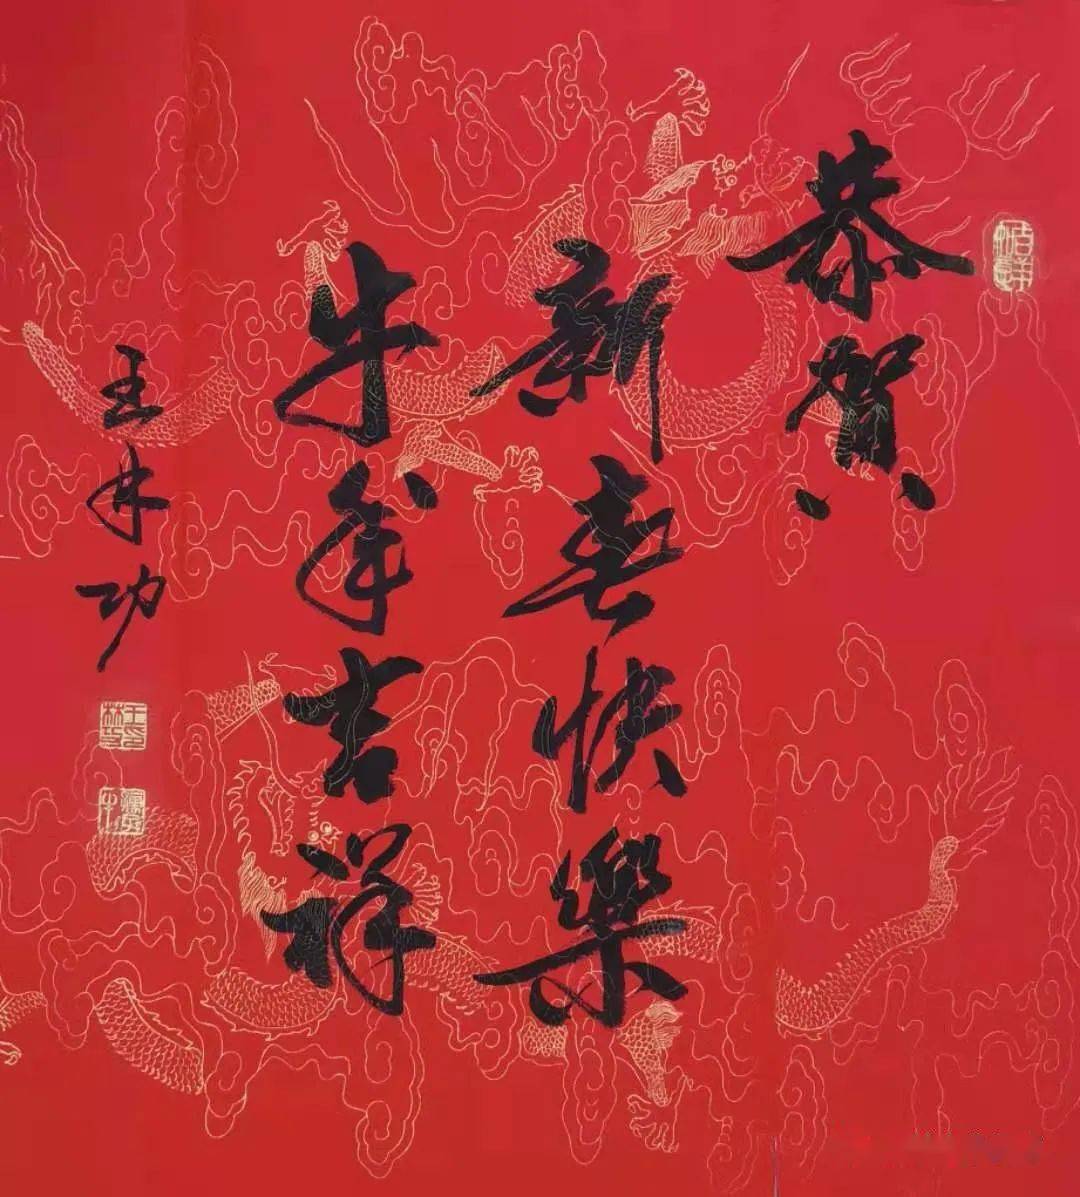 恭賀
新春快樂
牛年吉祥
王林功